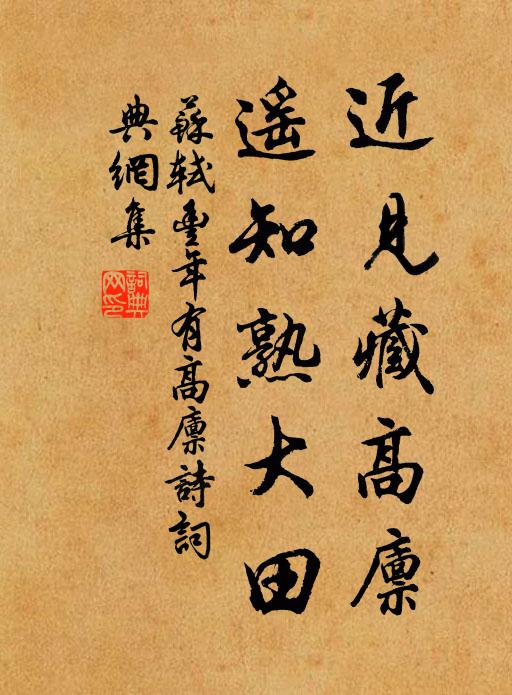 近見藏高廪
遥知熟大田
蘇軾豐年有高廪詩詞
典網集
詞典網印